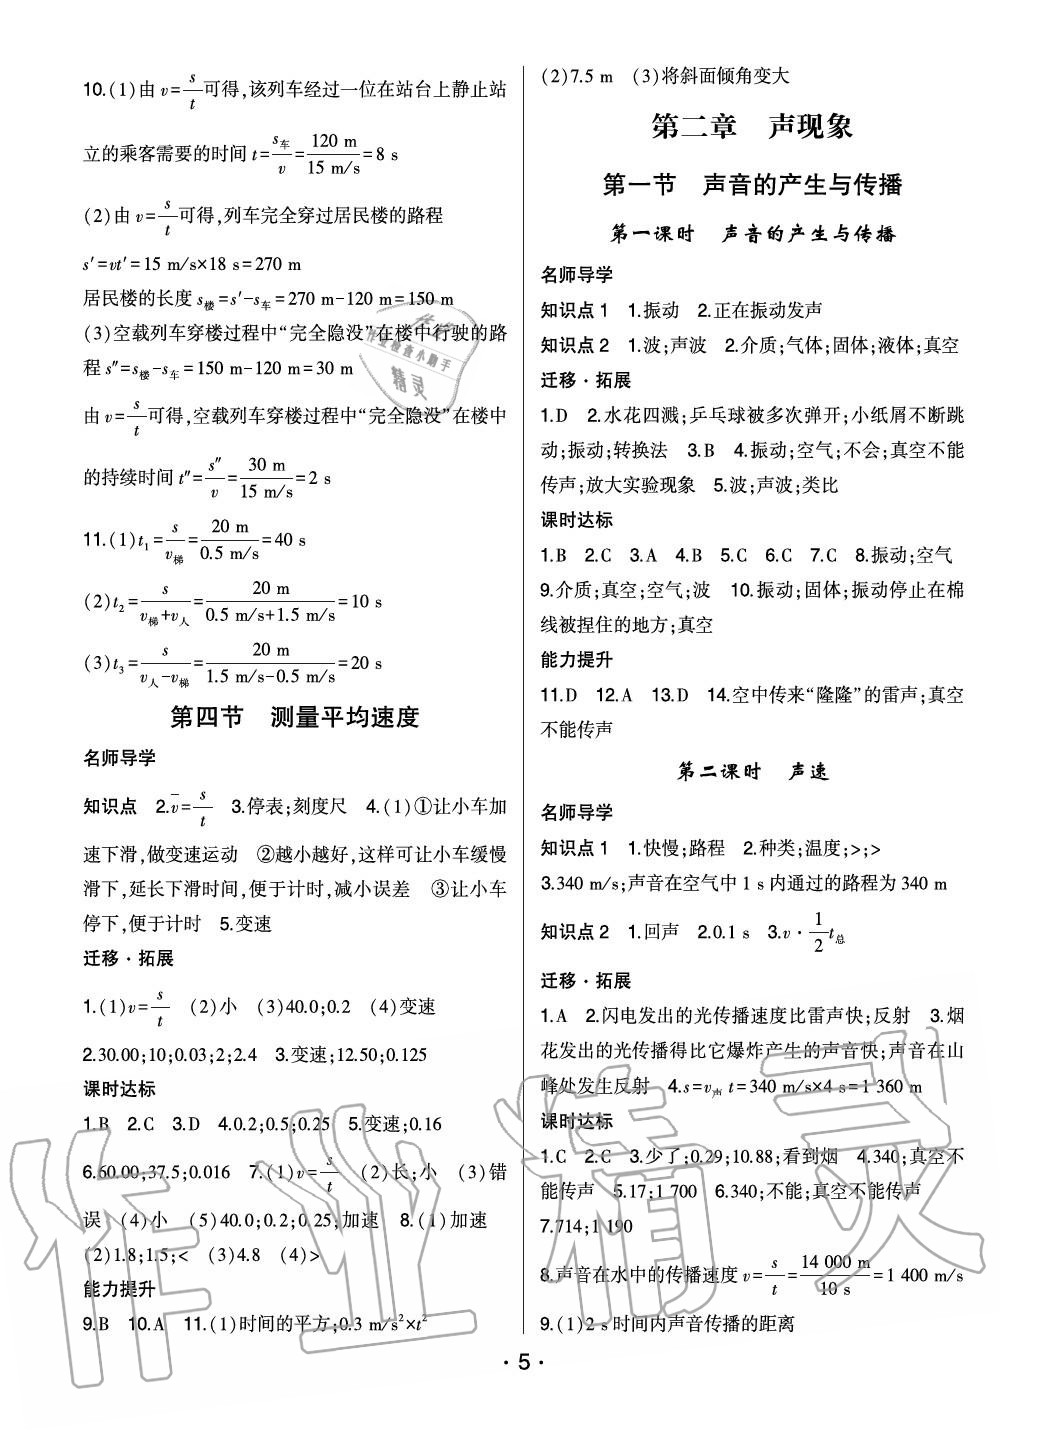 10.(1)由 v=s/t可得,该列车经过一位在站台上静止站
立的乘客需要的时间 t=s车/v=120 m/15 m/s=8 s
(2)由 v=s/t可得,列车完全穿过居民楼的路程
s′=vt′=15 m/s×18 s=270 m
居民楼的长度 s楼=s′-s车=270 m-120 m=150 m
(3)空载列车穿楼过程中“完全隐没”在楼中行驶的路
程 s″=s楼-s车=150 m-120 m=30 m
由 v=s/t可得,空载列车穿楼过程中“完全隐没”在楼中
的持续时间 t″=s″/v=30 m/15 m/s=2 s
11.(1)t₁=s/v梯=20 m/0.5 m/s=40 s
(2)t₂=s/v梯+v人=20 m/0.5 m/s+1.5 m/s=10 s
(3)t₃=s/v人-v梯=20 m/1.5 m/s-0.5 m/s=20 s
第四节 测量平均速度
名师导学
知识点 2.v̄=s/t 3.停表;刻度尺 4.(1)①让小车加
速下滑,做变速运动 ②越小越好,这样可让小车缓慢
滑下,延长下滑时间,便于计时,减小误差 ③让小车
停下,便于计时 5.变速
迁移·拓展
1.(1)v=s/t (2)小 (3)40.0;0.2 (4)变速
2.30.00;10;0.03;2;2.4 3.变速;12.50;0.125
课时达标
1.B 2.C 3.D 4.0.2;0.5;0.25 5.变速;0.16
6.60.00;37.5;0.016 7.(1)v=s/t (2)长;小 (3)错
误 (4)小 (5)40.0;0.2;0.25;加速 8.(1)加速
(2)1.8;1.5;< (3)4.8 (4)>
能力提升
9.B 10.A 11.(1)时间的平方;0.3 m/s²×t²
(2)7.5 m (3)将斜面倾角变大
第二章 声现象
第一节 声音的产生与传播
第一课时 声音的产生与传播
名师导学
知识点 1 1.振动 2.正在振动发声
知识点 2 1.波;声波 2.介质;气体;固体;液体;真空
迁移·拓展
1.D 2.水花四溅;乒乓球被多次弹开;小纸屑不断跳
动;振动;转换法 3.B 4.振动;空气;不会;真空不能
传声;放大实验现象 5.波;声波;类比
课时达标
1.B 2.C 3.A 4.B 5.C 6.C 7.C 8.振动;空气
9.介质;真空;空气;波 10.振动;固体;振动停止在棉
线被捏住的地方;真空
能力提升
11.D 12.A 13.D 14.空中传来“隆隆”的雷声;真空
不能传声
第二课时 声速
名师导学
知识点 1 1.快慢;路程 2.种类;温度;>;>
3.340 m/s;声音在空气中 1 s 内通过的路程为 340 m
知识点 2 1.回声 2.0.1 s 3.v·1/2 t总
迁移·拓展
1.A 2.闪电发出的光传播速度比雷声快;反射 3.烟
花发出的光传播得比它爆炸产生的声音快;声音在山
峰处发生反射 4.s=v声 t=340 m/s×4 s=1 360 m
课时达标
1.C 2.C 3.少了;0.29;10.88;看到烟 4.340;真空不
能传声 5.17;1 700 6.340;不能;真空不能传声
7.714;1 190
8.声音在水中的传播速度 v=s/t=14 000 m/10 s=1 400 m/s
9.(1)2 s 时间内声音传播的距离
·5·
作业检查小助手
精灵
作业精灵